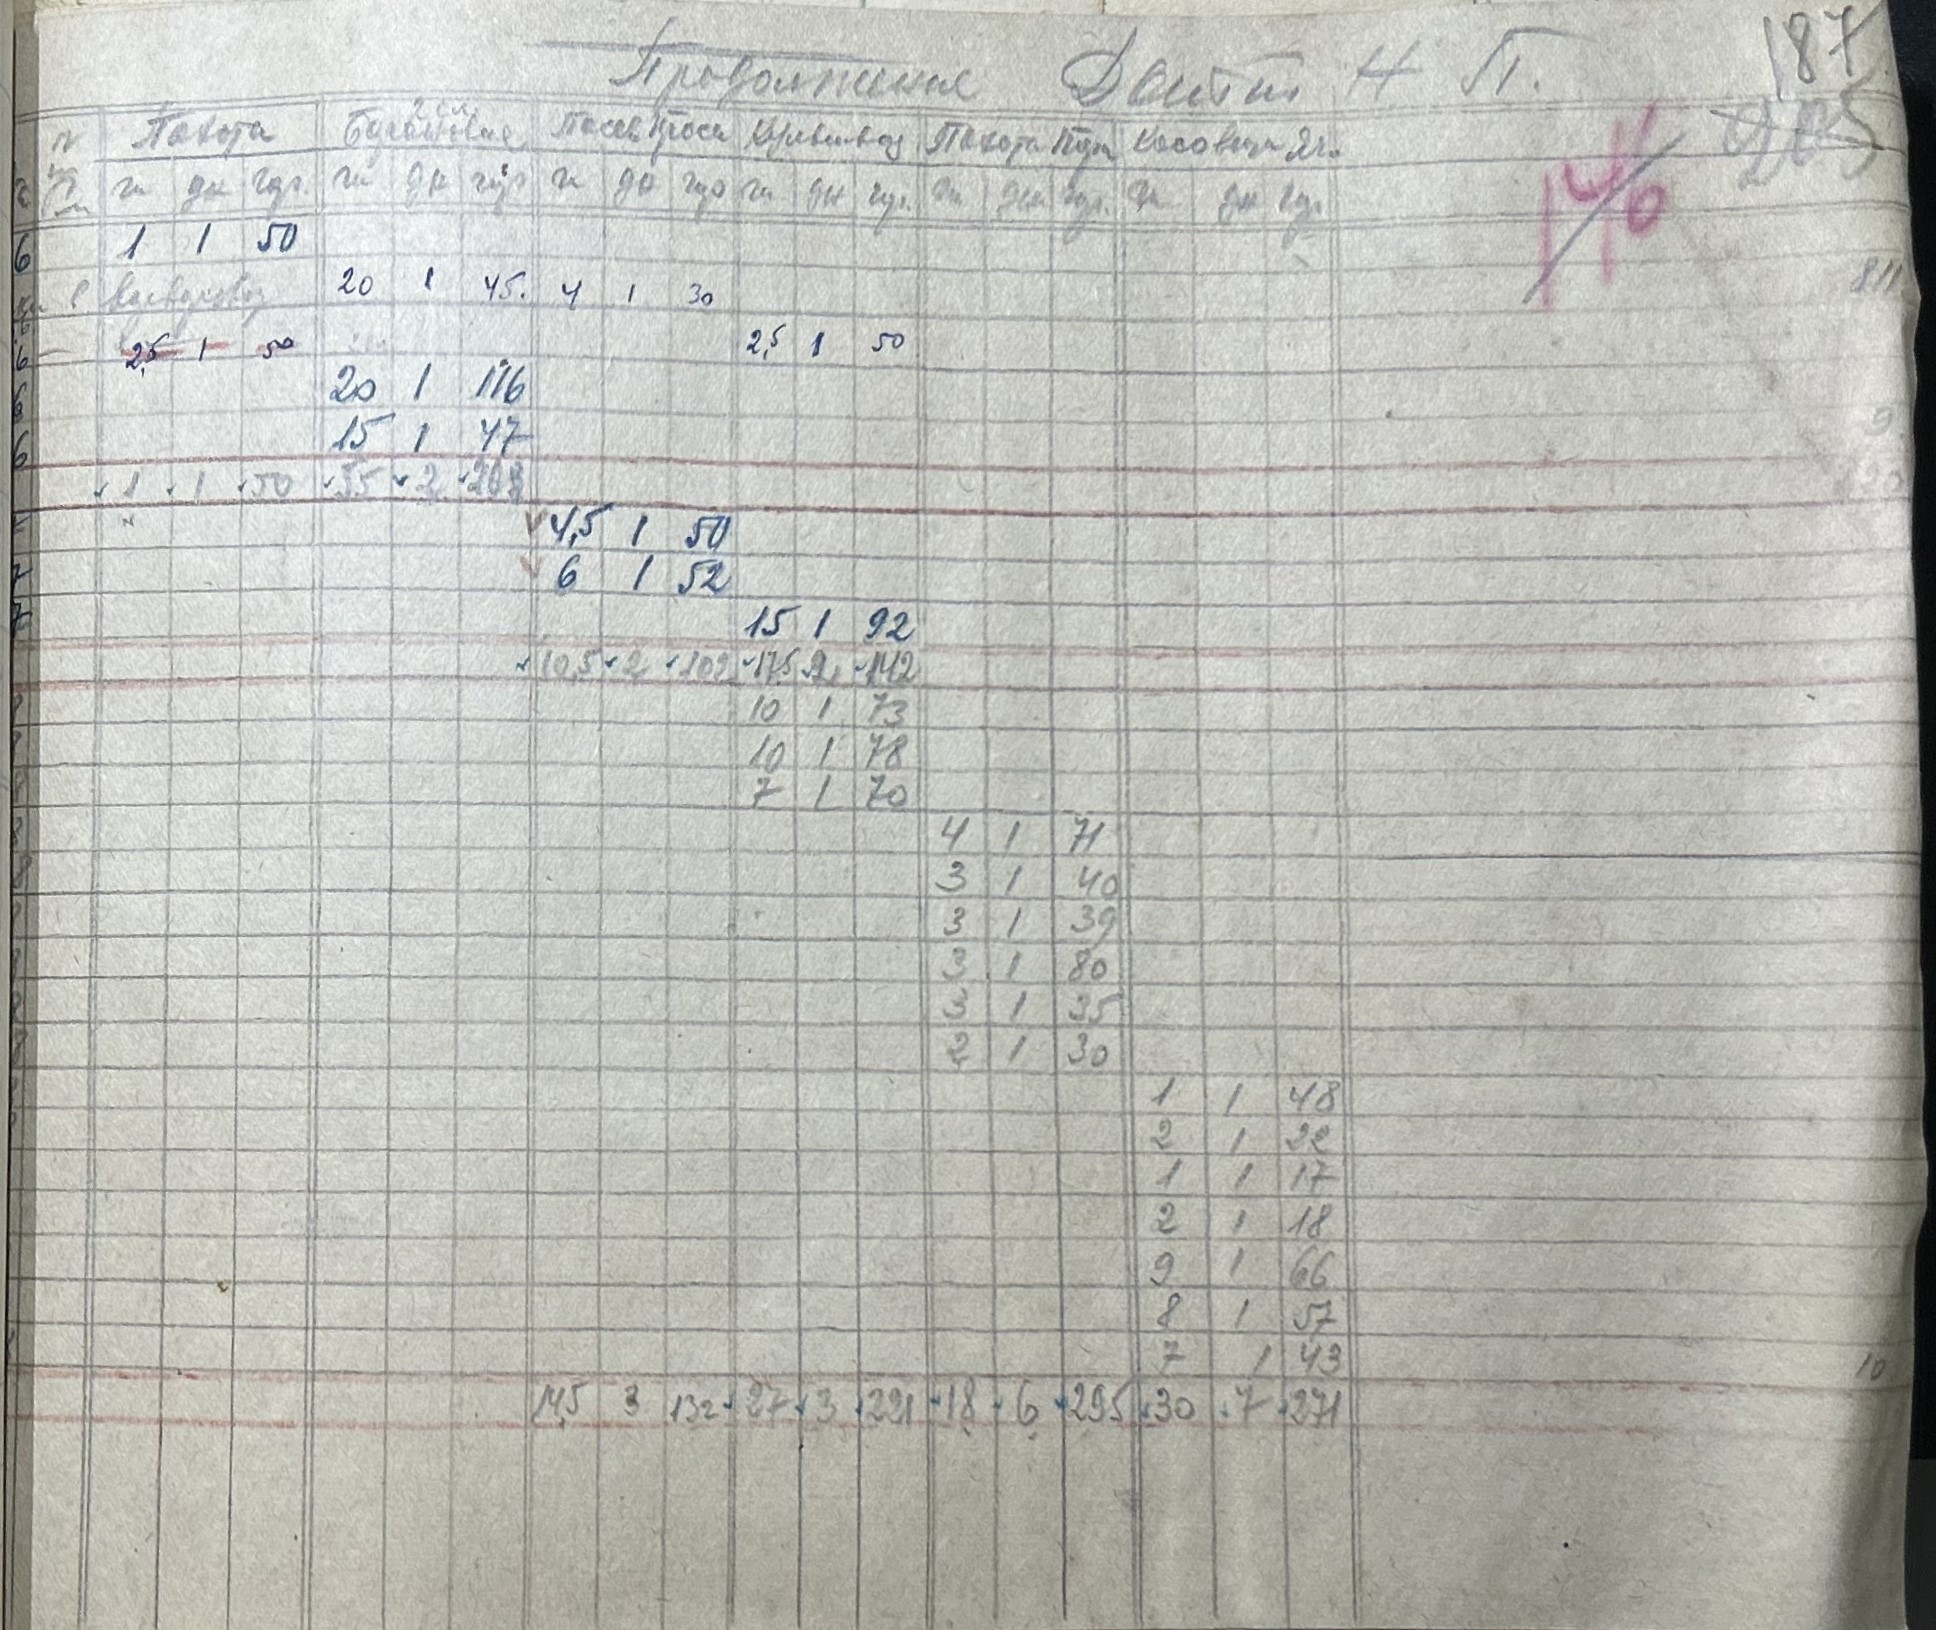 187
Продолжение Н П.
205
140
Пахота Боронование 2 сл. Посев проса Культивац Пахота Пар Косовица Яч.
га дн гор. га дн гор га дн гор га дн гор. га дн гор. га дн гор
6 1 1 50
811
Культивац 20 1 45. 4 1 30
6 2,5 1 50 2,5 1 50
6 20 1 116
6 15 1 47 9
1 1 50 55 2 208
4,5 1 50
6 1 52
15 1 92
10,5 2 102 17,5 2 142
10 1 73
10 1 78
7 1 70
4 1 71
3 1 40
3 1 39
3 1 80
3 1 35
2 1 30
1 1 48
2 1 22
1 1 17
2 1 18
9 1 66
8 1 57
7 1 43 10
14,5 3 132 27 3 221 18 6 295 30 7 271